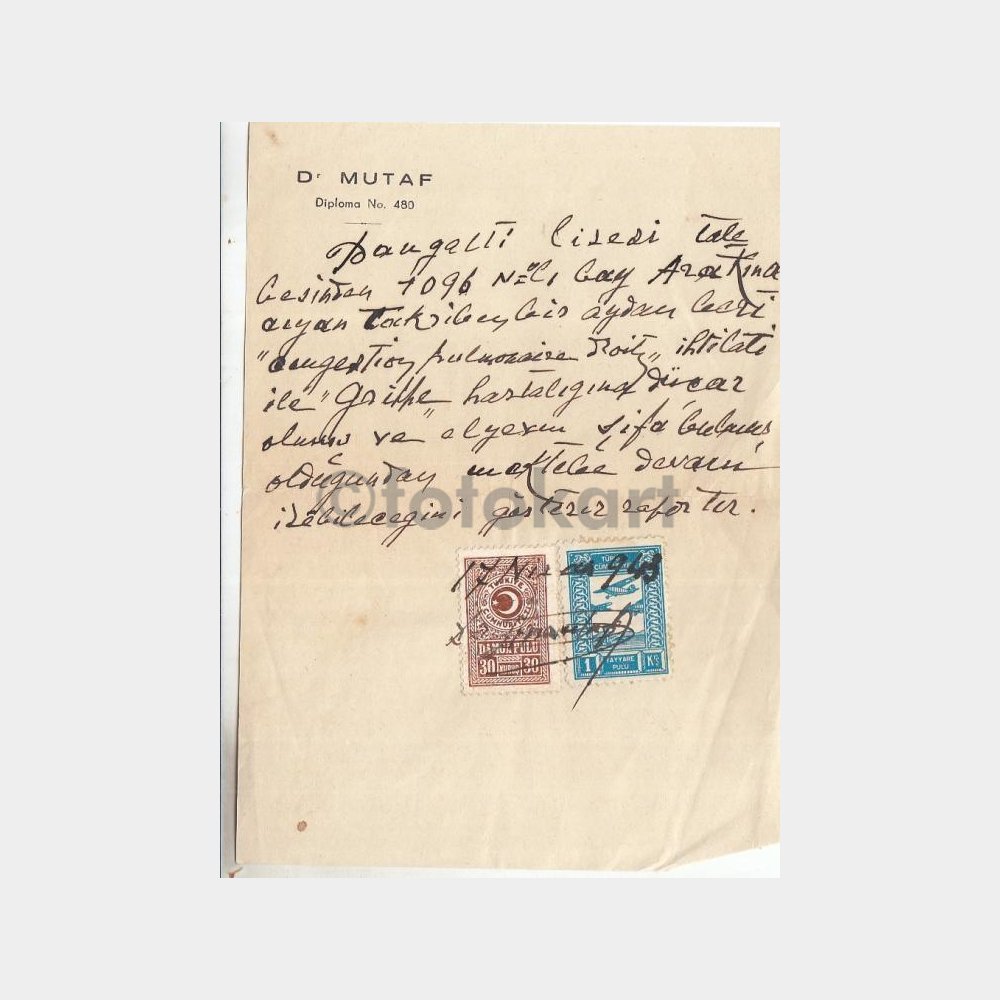 Dr MUTAF
Diploma No. 480
Pangaltı lisesi tale
besinden 1096 Noli bay Ara
takriben bir aydan beri
"congestion pulmonaire droite" ihtilatı
ile "Grippe" hastalığına düçar
olmuş ve elyevm şifa bulmuş
olduğundan mektebe devam
edebileceğini gösterir rapor tur.
17 Nisan 943
TÜRKİYE CUMHURİYETİ
DAMGA PULU
30 KURUŞ 30
TÜRK
CUM
1 TAYYARE PULU KŞ
©fotokart